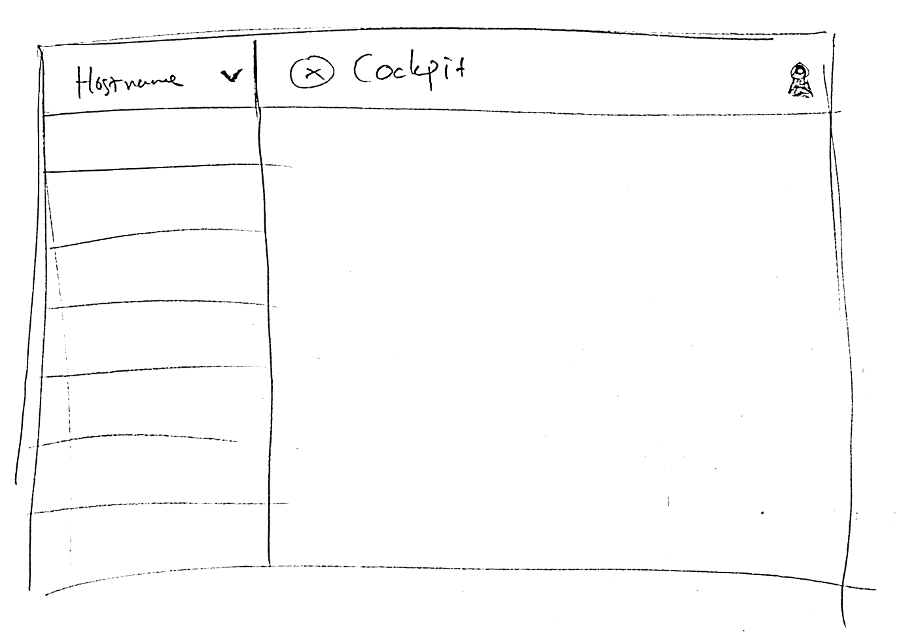 Hostname
Cockpit